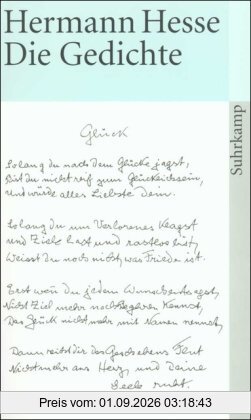 Hermann Hesse
Die Gedichte
Suhrkamp
Glück
Solang du nach dem Glücke jagst,
Bist du nicht reif zum Glücklichsein,
Und würde alles Liebste Dein.
Solang du um Verlorenes klagst
und Ziele hast und rastlos bist,
Weisst du noch nicht, was Friede ist.
Erst wenn du jedem Wunsch entsagst,
Nicht Ziel mehr noch Begehren kennst,
Das Glück nicht mehr mit Namen nennst,
Dann reicht dir des Geschehens Flut
Nicht mehr ans Herz, und Deine
Seele ruht.
Preis vom: 01.09.2026 03:18:43